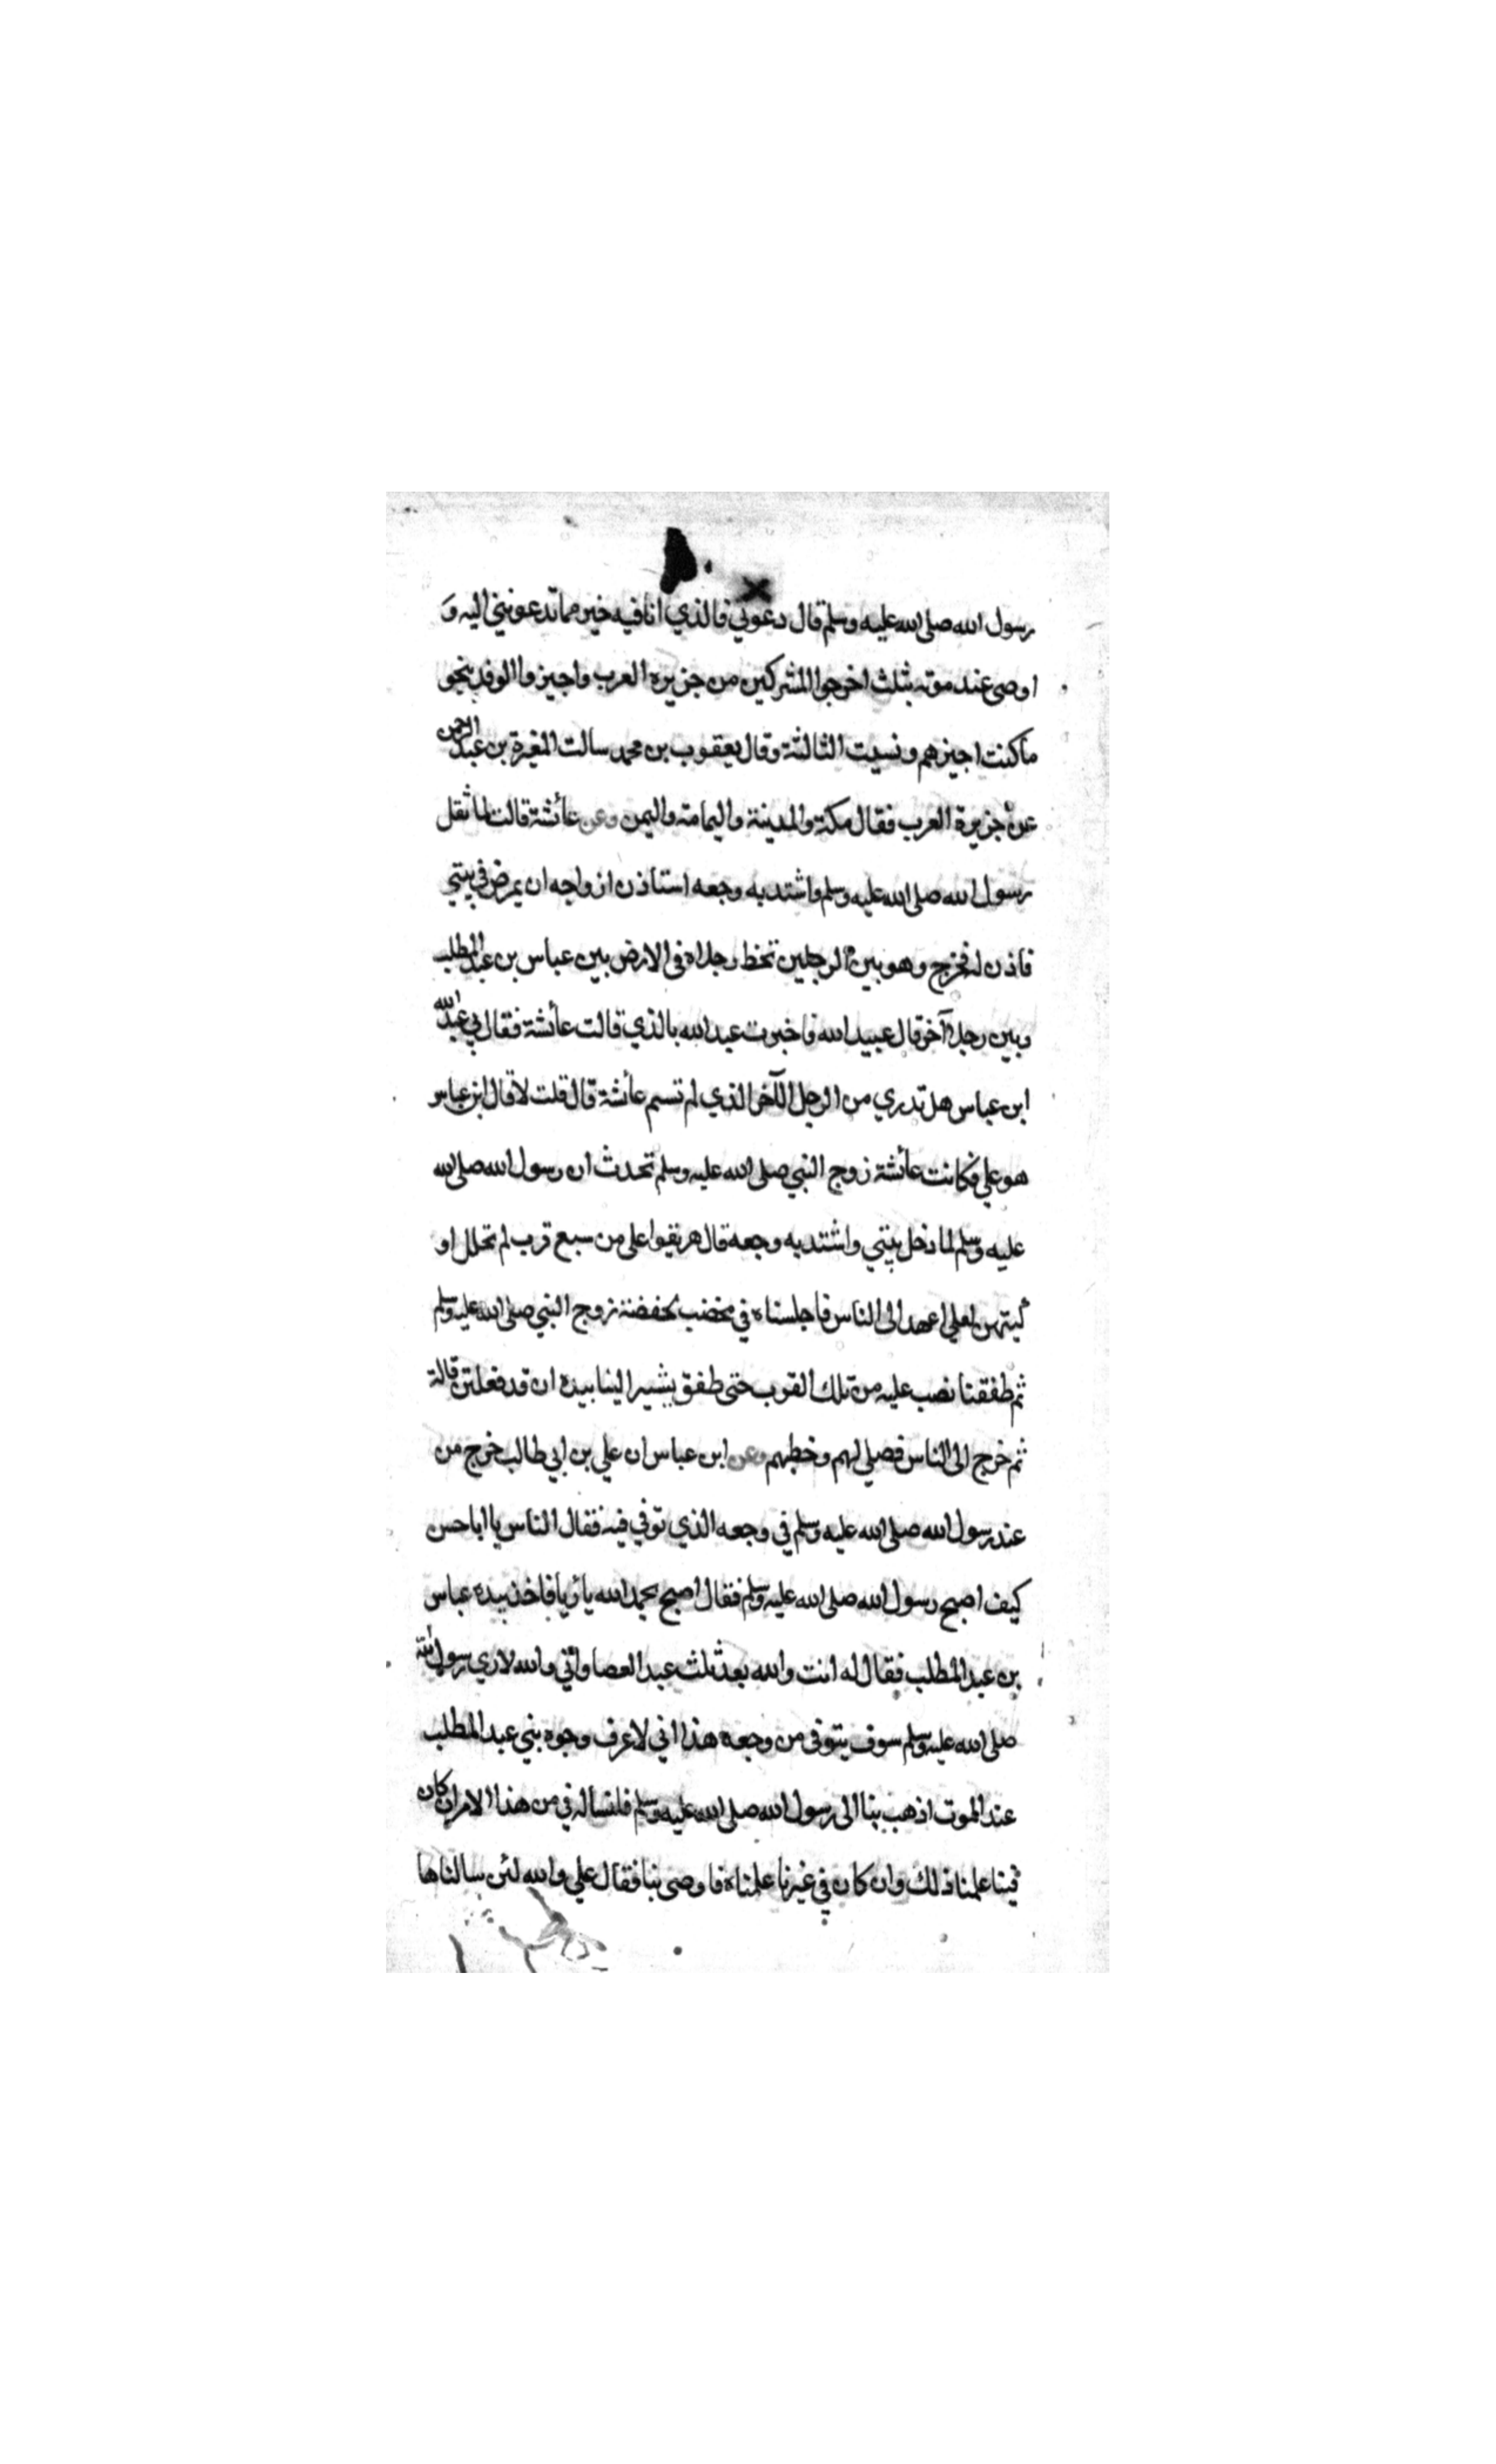 رسول الله صلى الله عليه وسلم قال دعوني فالذي انا فيه خير مما تدعونني اليه و
اوصى عند موته بثلث اخرجوا المشركين من جزيره العرب واجيزوا الوفد بنحو
ما كنت اجيزهم ونسيت الثالثة وقال يعقوب بن محمد سالت المغيرة بن عبد الرحمن
عن جزيرة العرب فقال مكة والمدينة واليمامة واليمن وعن عائشة قالت لما ثقل
رسول الله صلى الله عليه وسلم واشتد به وجعه استاذن ازواجه ان يمرض في بيتي
فاذن له فخرج وهو بين الرجلين تخط رجلاه في الارض بين عباس بن عبد المطلب
وبين رجل آخر قال عبيد الله فاخبرت عبد الله بالذي قالت عائشة فقال لي عبد الله
ابن عباس هل تدري من الرجل الآخر الذي لم تسم عائشة قال قلت لا قال ابن عباس
هو علي فكانت عائشة زوج النبي صلى الله عليه وسلم تحدث ان رسول الله صلى الله
عليه وسلم لما دخل بيتي واشتد به وجعه قال هريقوا على من سبع قرب لم تحلل او
كيتهن لعلي اعهد الى الناس فاجلسناه في مخضب لحفضة زوج النبي صلى الله عليه وسلم
ثم طفقنا نصب عليه من تلك القرب حتى طفق يشير الينا بيده ان قد فعلتن قالة
ثم خرج الى الناس فصلى لهم وخطبهم وعن ابن عباس ان علي بن ابي طالب خرج من
عند رسول الله صلى الله عليه وسلم في وجعه الذي توفي فيه فقال الناس يا ابا حسن
كيف اصبح رسول الله صلى الله عليه وسلم فقال اصبح بحمد الله بارئا فاخذ بيده عباس
بن عبد المطلب فقال له انت والله بعد ثلث عبد العصا واني والله لاري رسول الله
صلى الله عليه وسلم سوف يتوفى من وجعه هذا اني لاعرف وجوه بني عبد المطلب
عند الموت اذهب بنا الى رسول الله صلى الله عليه وسلم فلنساله في من هذا الامر ان كان
فينا علمنا ذلك وان كان في غيرنا علمناه فاوصى بنا فقال علي والله لئن سالناها